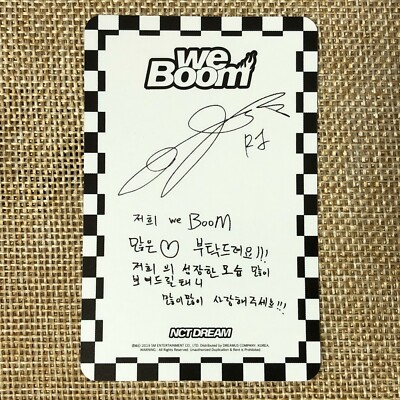 we
Boom
RJ
저희 we BOOM
많은 ♡ 부탁드려요!!!
저희의 성장한 모습 많이
보여드릴테니
많이많이 사랑해주세요!!!
NCT DREAM
WARNING : All Rights Reserved. Unauthorized Duplication & Rent is Prohibited.